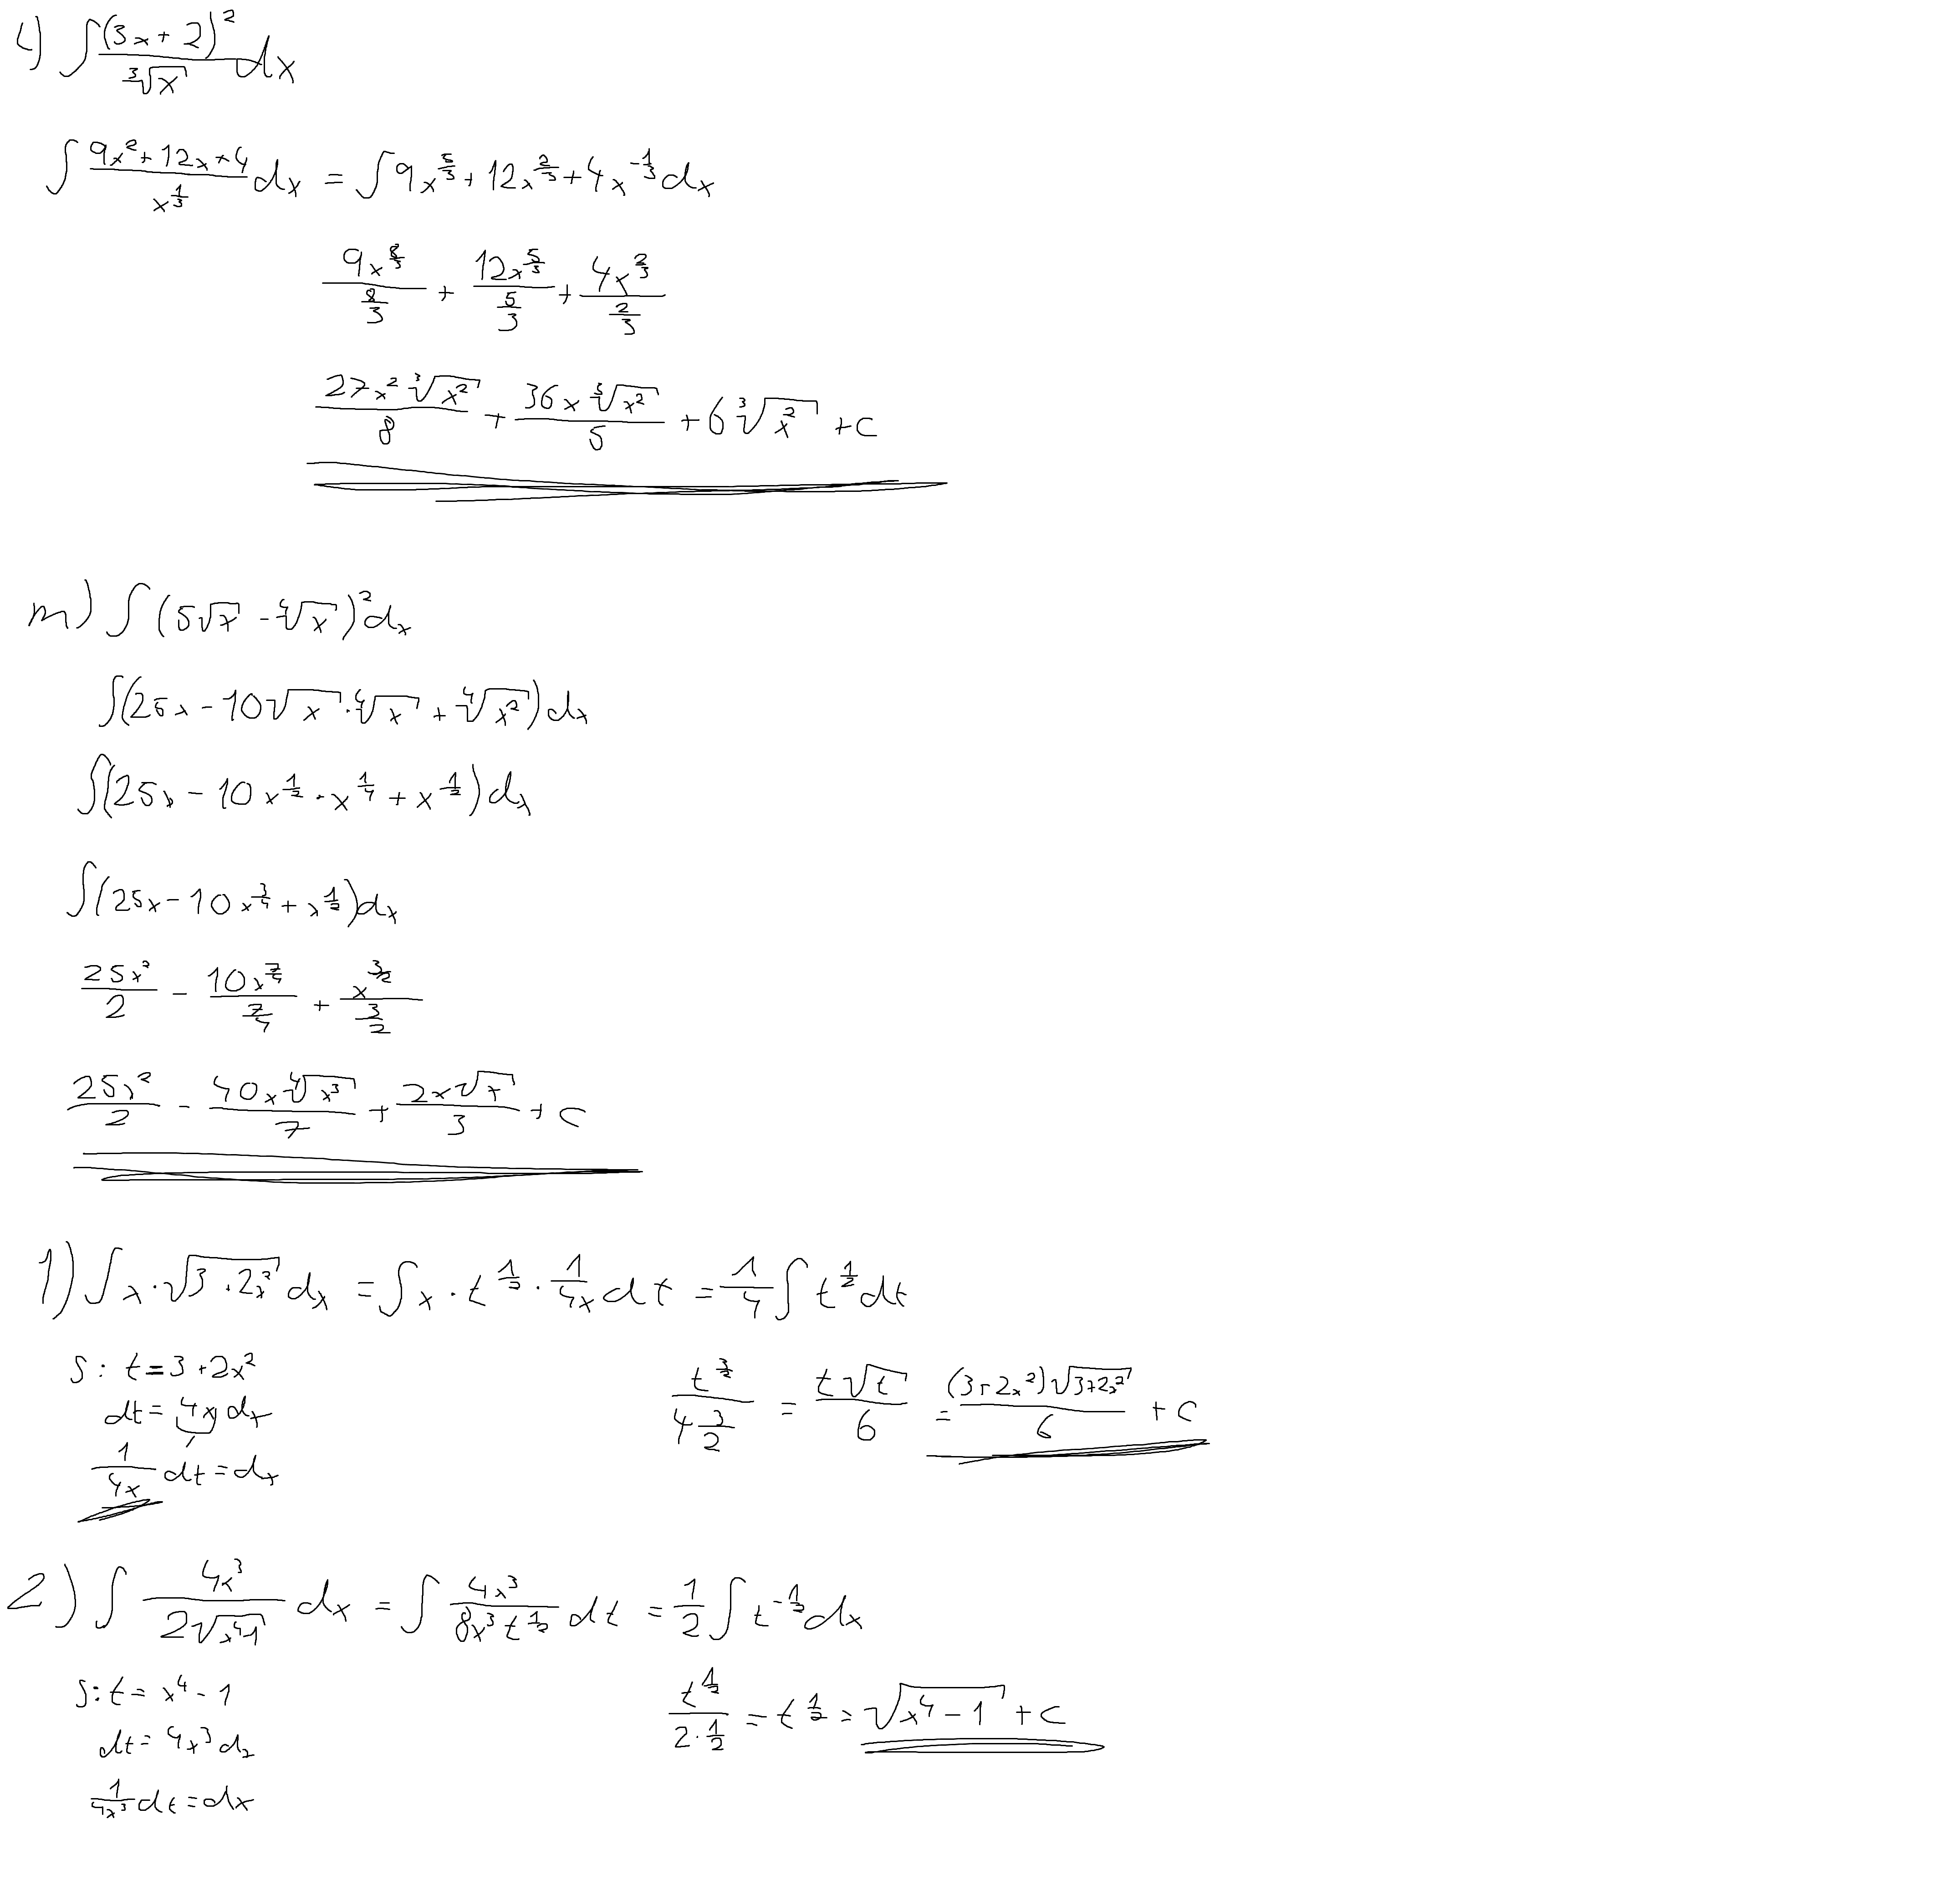 L) ∫ (3x + 2)² / ∛x dx
∫ (9x² + 12x + 4) / x^(1/3) dx = ∫ 9x^(5/3) + 12x^(2/3) + 4x^(-1/3) dx
9x^(8/3) / (8/3) + 12x^(5/3) / (5/3) + 4x^(2/3) / (2/3)
27x² ∛x² / 8 + 36x ∛x² / 5 + 6 ∛x² + c
m) ∫ (5√x - ∜x)² dx
∫ (25x - 10√x · ∜x + ∜x²) dx
∫ (25x - 10x^(1/2) · x^(1/4) + x^(1/2)) dx
∫ (25x - 10x^(3/4) + x^(1/2)) dx
25x² / 2 - 10x^(7/4) / (7/4) + x^(3/2) / (3/2)
25x² / 2 - 40x ∜x³ / 7 + 2x√x / 3 + c
1) ∫ x · √(3 + 2x²) dx = ∫ x · t^(1/2) · 1/(4x) dt = 1/4 ∫ t^(1/2) dt
S: t = 3 + 2x²
dt = 4x dx
1/(4x) dt = dx
t^(3/2) / (4 3/2) = t√t / 6 = (3+2x²)√(3+2x²) / 6 + c
2) ∫ 4x³ / (2√(x⁴-1)) dx = ∫ 4x³ / (8x³ t^(1/2)) dt = 1/2 ∫ t^(-1/2) dx
S: t = x⁴ - 1
dt = 4x³ dx
1/(4x³) dt = dx
t^(1/2) / (2 · 1/2) = t^(1/2) = √(x⁴ - 1) + c